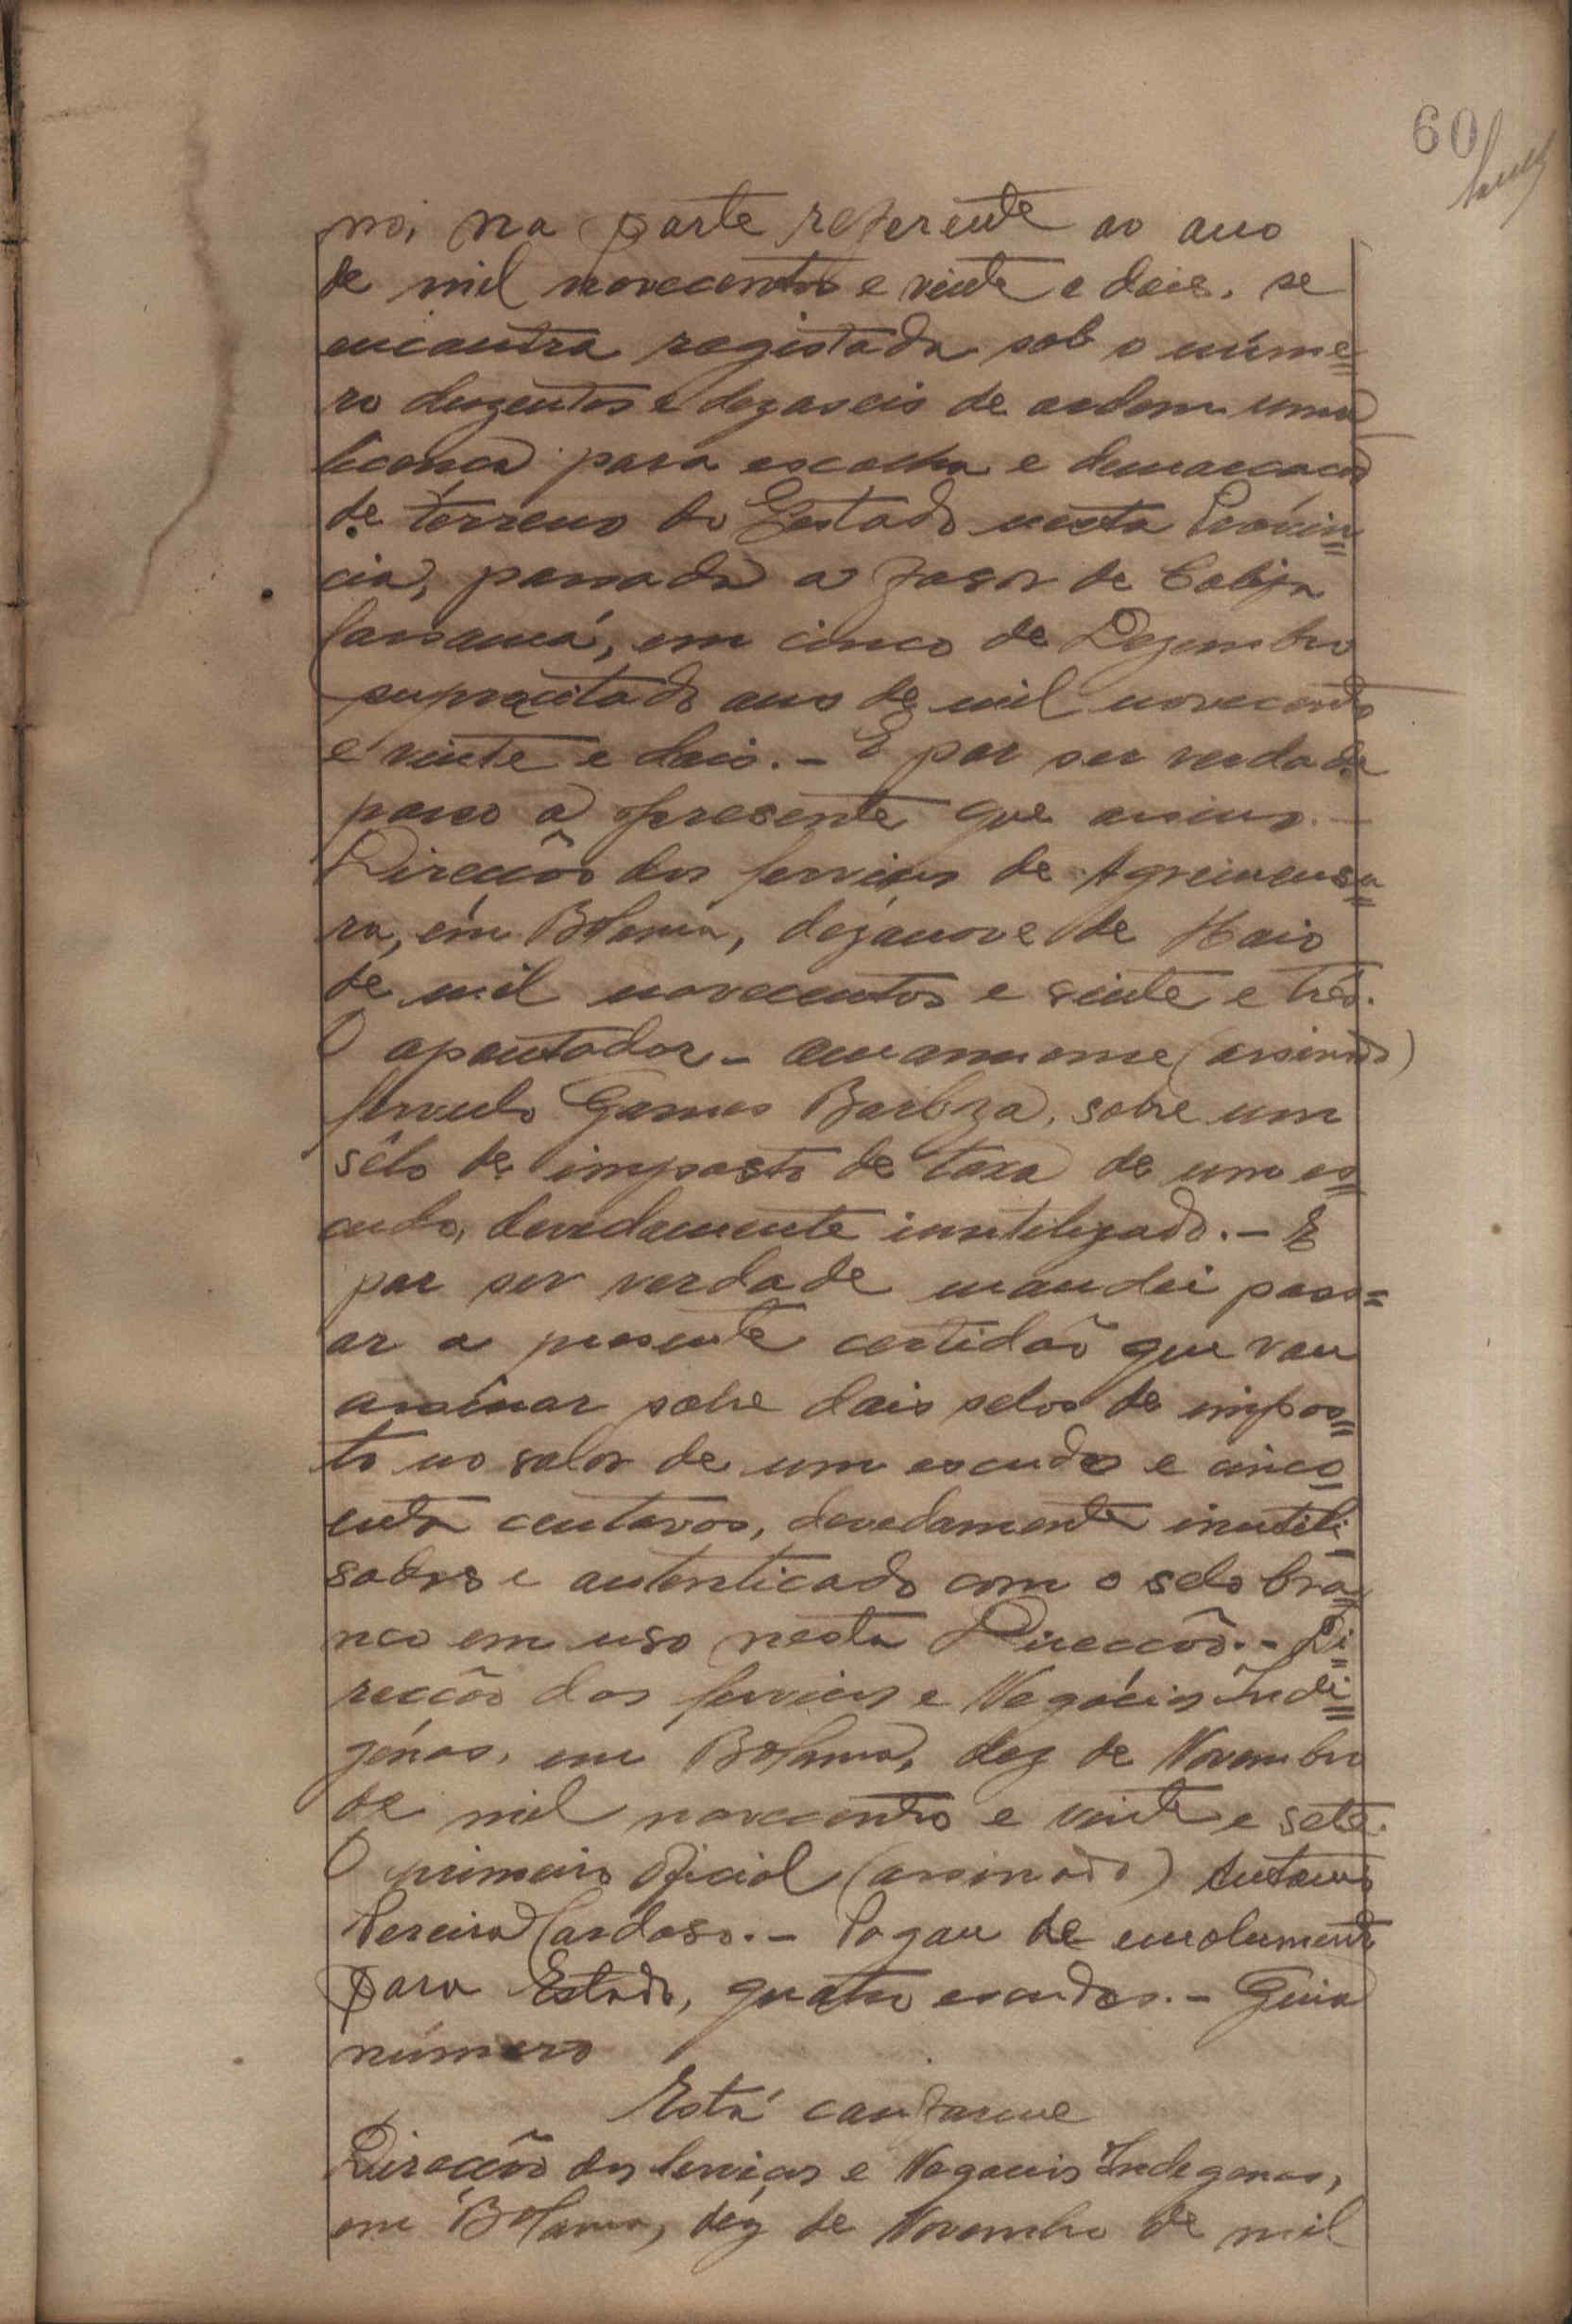 60
no, na parte referente ao ano
de mil novecentos e vinte e dois, se
encontra registada sob o núme=
ro duzentos e dezaseis de ordem uma
licença para escolha e demarcação
de terreno do Estado nesta Provin=
cia, passada a favor de
em cinco de Dezembro
supracitado ano de mil novecentos
e vinte e dois. - E por ser verdade
passo a presente que assino. -
Direcção dos Serviços de Agrimensu=
ra, em Bolama, dezanove de Maio
de mil novecentos e vinte e três.
O apontador - amanuense (assinado)
Gomes Barboza, sobre um
sêlo de imposto de taxa de um es=
cudo, devedamente inutilizado. - E
por ser verdade mandei pass=
ar a presente certidão que vou
assinar sobre dois selos de impos=
to no valor de um escudo e cinco=
enta centavos, devedamente inutili=
sados e autenticado com o selo bra=
nco em uso nesta Direcção. - Di=
recção dos Serviços e Negócios Indi=
génas, em Bolama, dez de Novembro
de mil novecentos e vinte e sete.
O primeiro oficial (assinado) Antonio
Pereira Cardoso. - Pagou de emolumento
para Estado, quatro escudos. - Guia
número
Está conforme
Direcção dos Serviços e Negocios Indegenas,
em Bolama, dez de Novembro de mil